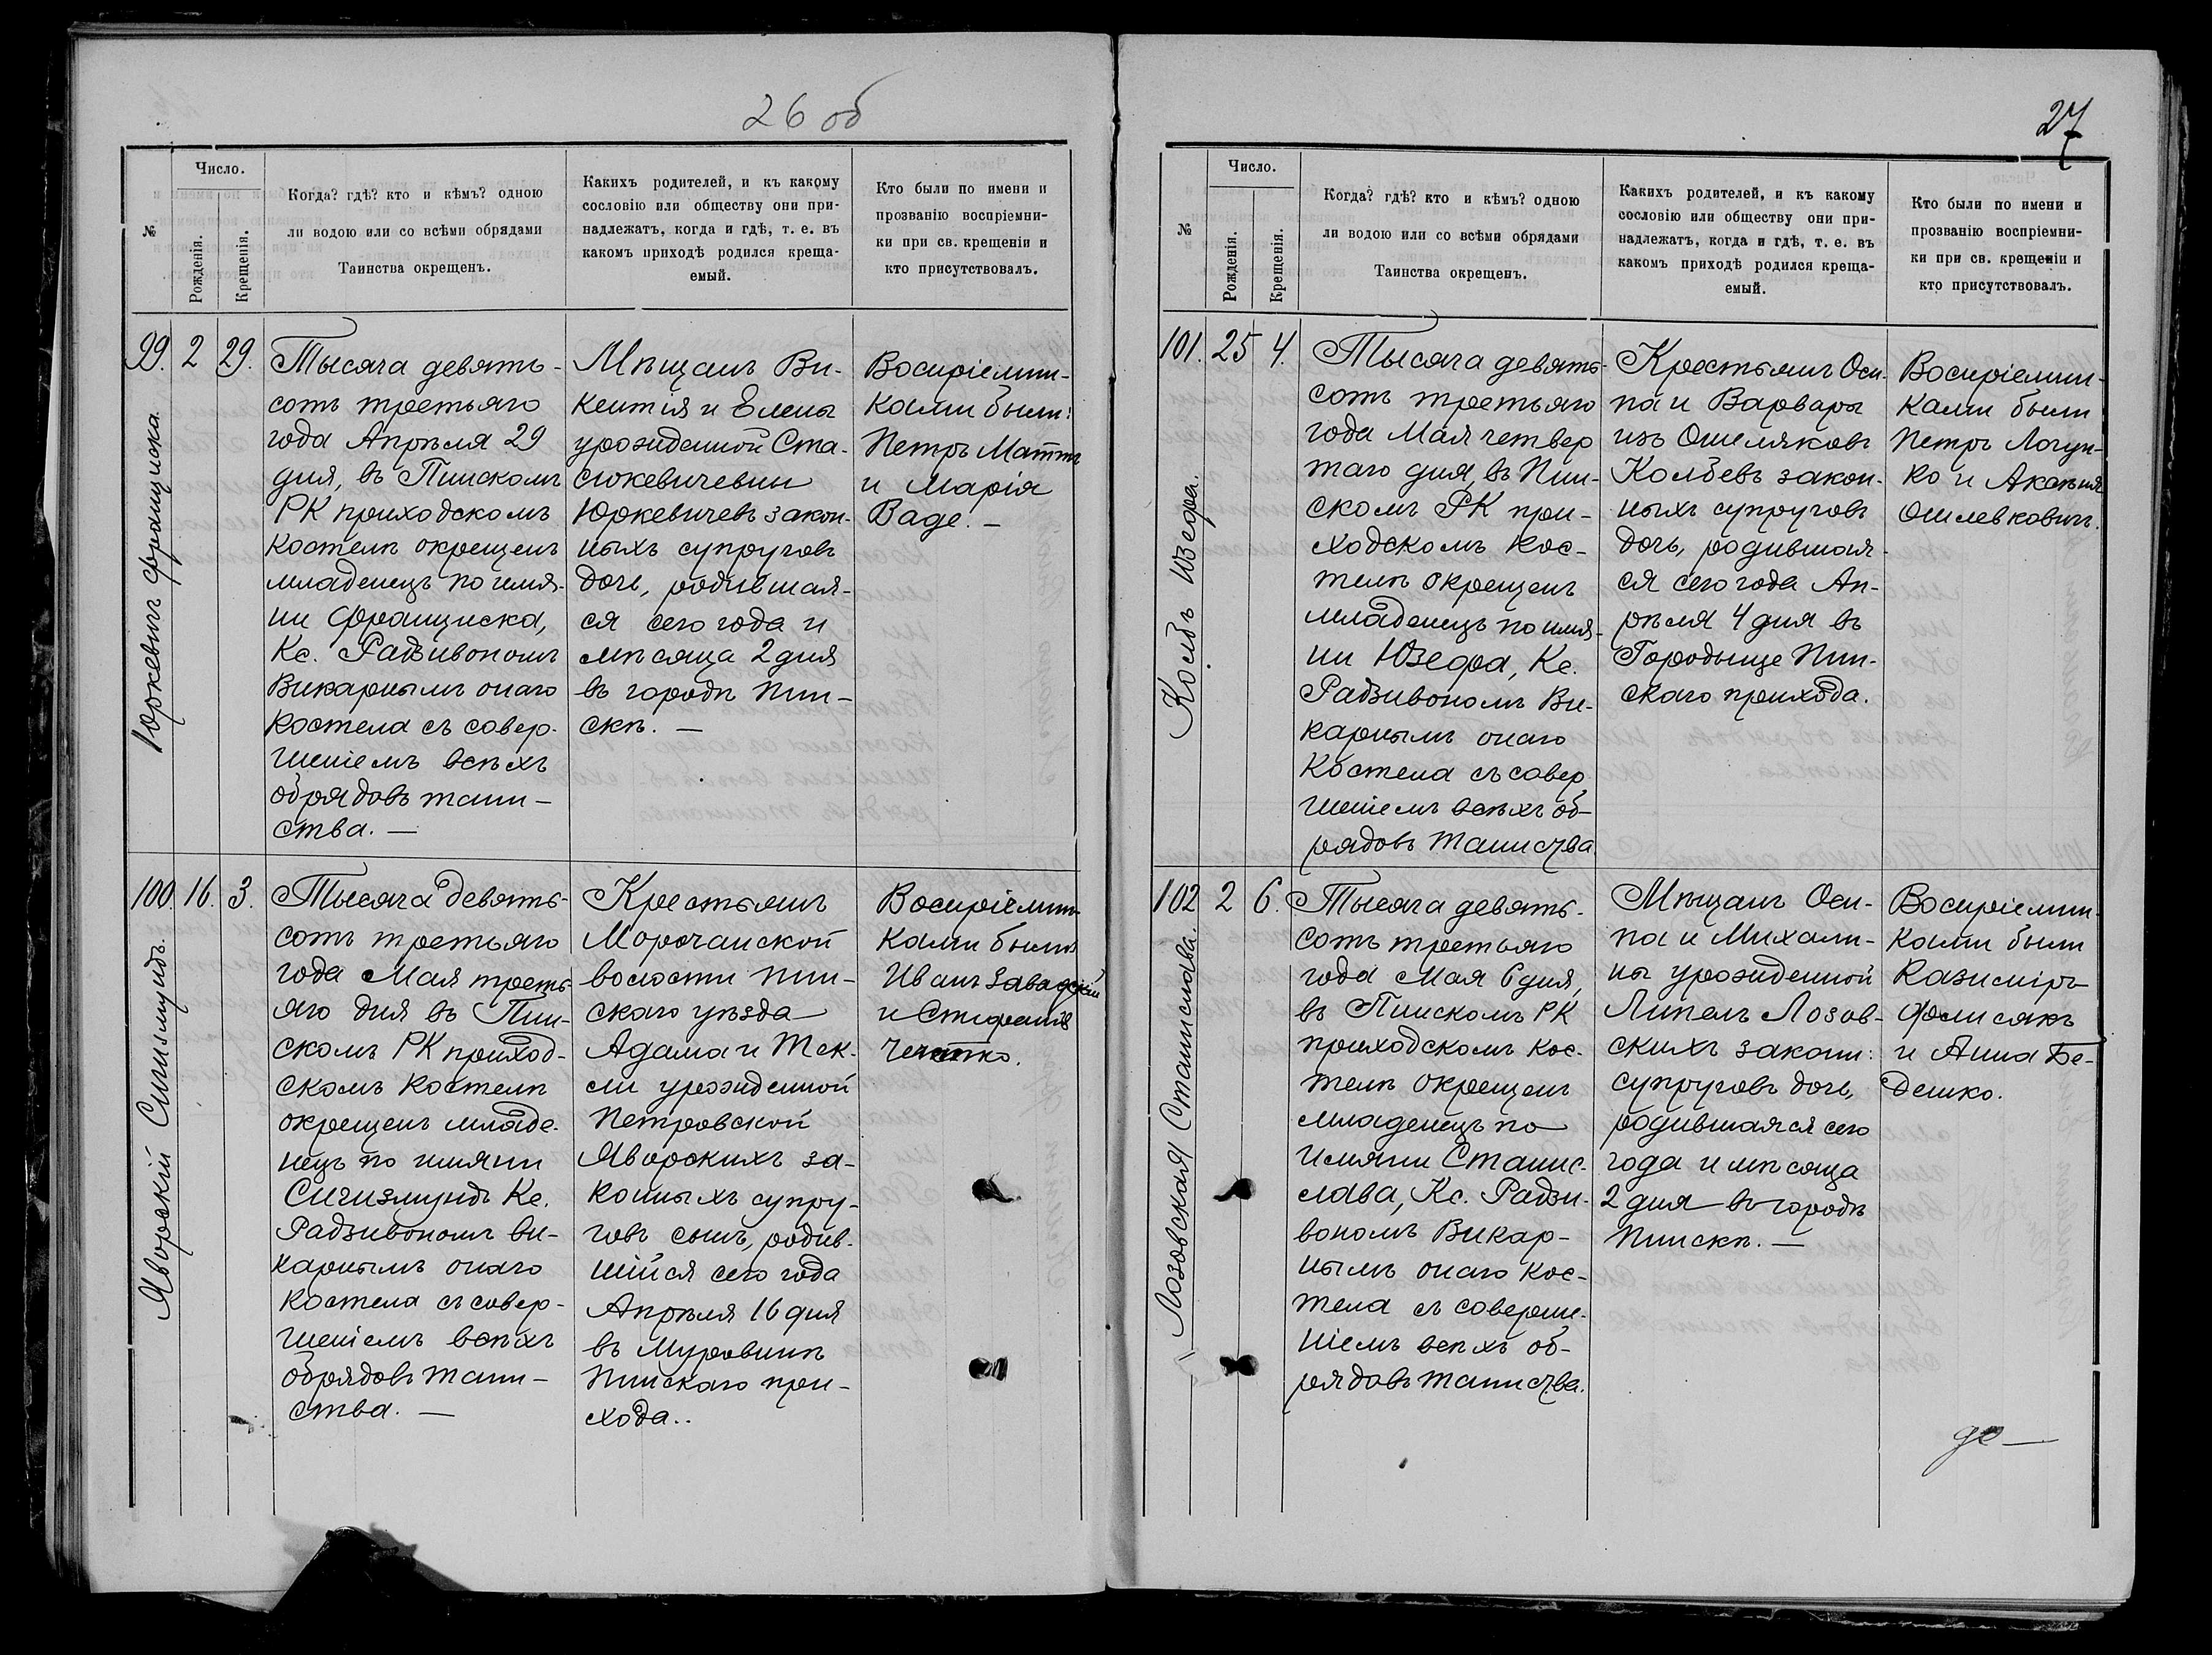 26 об
№
Число.
Рожденія.
Крещенія.
Когда? гдѣ? кто и кѣмъ? одною
ли водою или со всѣми обрядами
Таинства окрещенъ.
Какихъ родителей, и къ какому
сословію или обществу они при-
надлежатъ, когда и гдѣ, т. е. въ
какомъ приходѣ родился креща-
емый.
Кто были по имени и
прозванію воспріемни-
ки при св. крещеніи и
кто присутствовалъ.
99. 2 29.
Юркевичъ Франциска.
Тысяча девять-
сотъ третьяго
года Апрѣля 29
дня, въ Пинскомъ
РК приходскомъ
костелѣ окрещенъ
младенецъ по имя-
ни Франциска,
Кс. Радзивономъ
Викарнымъ онаго
костела съ совер-
шеніемъ всѣхъ
обрядовъ таин-
ства. —
Мѣщанъ Ви-
кентія и Елены
урожденной Ста-
сюкевичевны
Юркевичевъ закон-
ныхъ супруговъ
дочь, родившая-
ся сего года и
мѣсяца 2 дня
въ городѣ Пин-
скѣ. —
Воспріемни-
ками были:
Петръ Маттъ
и Марія
Ваде. —
100. 16. 3.
Яворскій Сигизмундъ.
Тысяча девять-
сотъ третьяго
года Мая треть-
яго дня въ Пин-
скомъ РК приход-
скомъ костелѣ
окрещенъ младе-
нецъ по имяни
Сигизмундъ Кс.
Радзивономъ ви-
карнымъ онаго
костела съ совер-
шеніемъ всѣхъ
обрядовъ таин-
ства. —
Крестьянъ
Морочанской
волости Пин-
скаго уѣзда
Адама и Тек-
ли урожденной
Петровской
Яворскихъ за-
конныхъ супру-
говъ сынъ, родив-
шійся сего года
Апрѣля 16 дня
въ Муровинѣ
Пинскаго при-
хода..
Воспріемни-
ками были
Иванъ Завадскій
и Стефанія
27
№
Число.
Рожденія.
Крещенія.
Когда? гдѣ? кто и кѣмъ? одною
ли водою или со всѣми обрядами
Таинства окрещенъ.
Какихъ родителей, и къ какому
сословію или обществу они при-
надлежатъ, когда и гдѣ, т. е. въ
какомъ приходѣ родился креща-
емый.
Кто были по имени и
прозванію воспріемни-
ки при св. крещеніи и
кто присутствовалъ.
101. 25 4.
Колбъ Юзефа.
Тысяча девять-
сотъ третьяго
года Мая четвер
таго дня, въ Пин-
скомъ РК при-
ходскомъ кос-
телѣ окрещенъ
младенецъ по имя-
ни Юзефа, Кс.
Радзивономъ Ви-
карнымъ онаго
Костела съ совер
шеніемъ всѣхъ об-
рядовъ Таинства
Крестьянъ Оси-
па и Варвары
изъ Ошмляковъ
Колбевъ закон-
ныхъ супруговъ
дочь, родившая-
ся сего года Ап-
рѣля 4 дня въ
Городыще Пин-
скаго прихода.
Воспріемни-
ками были
Петръ Логун-
ко и
102 2 6.
Лозовская Станислава.
Тысяча девять-
сотъ третьяго
года Мая 6 дня,
въ Пинскомъ РК
приходскомъ кос-
телѣ окрещенъ
младенецъ по
имяни Станис-
лава, Кс. Радзи-
вономъ Викар-
нымъ онаго кос-
тела съ соверше-
ніемъ всѣхъ об-
рядовъ таинства.
Мѣщанъ Оси-
па и Михали-
ны урожденной
Липель Лозов-
скихъ законн:
супруговъ дочь,
родившаяся сего
года и мѣсяца
2 дня въ городѣ
Пинскѣ. —
Воспріемни-
ками были
Казиміръ
Фолисякъ
и Анна Бе-
дешко.